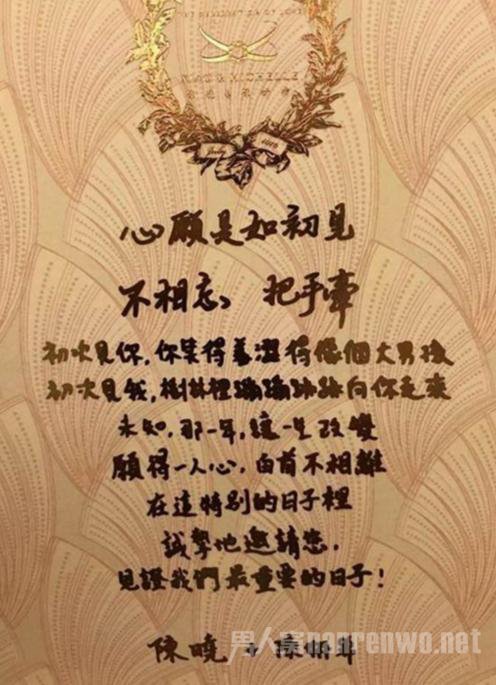 & MICHELLE
心願是如初見
不相忘 把手牽
初次見你,你笑得羞澀得像個大男孩
初次見我,樹林裡蹦蹦跳跳向你走來
未知,那一年,讓一生改變
願得一人心,白首不相離
在這特别的日子裡
誠摯地邀請您,
見證我們最重要的日子!
陳曉
男人窝nanrenwo.net